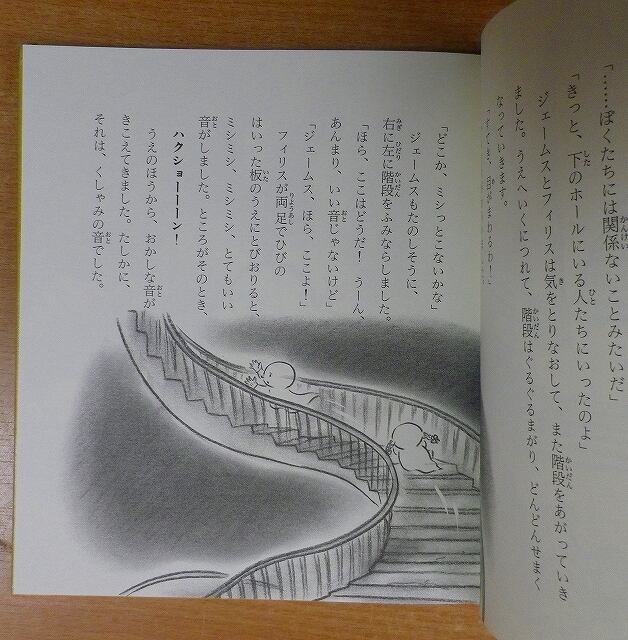 「……ぼくたちには関係ないことみたいだ」
「きっと、下のホールにいる人たちにいったのよ」
ジェームスとフィリスは気をとりなおして、また階段をあがっていき
ました。うえへいくにつれて、階段はぐるぐるまがり、どんどんせまく
なっていきます。
「すてき、目がまわるわ！」
「どこか、ミシっとこないかな」
ジェームスもたのしそうに、
右に左に階段をふみならしました。
「ほら、ここはどうだ！　うーん、
あんまり、いい音じゃないけど」
「ジェームス、ほら、ここよ！」
フィリスが両足でひびの
はいった板のうえにとびおりると、
ミシミシ、ミシミシ、とてもいい
音がしました。ところがそのとき、
ハクショーーーン！
うえのほうから、おかしな音が
きこえてきました。たしかに、
それは、くしゃみの音でした。